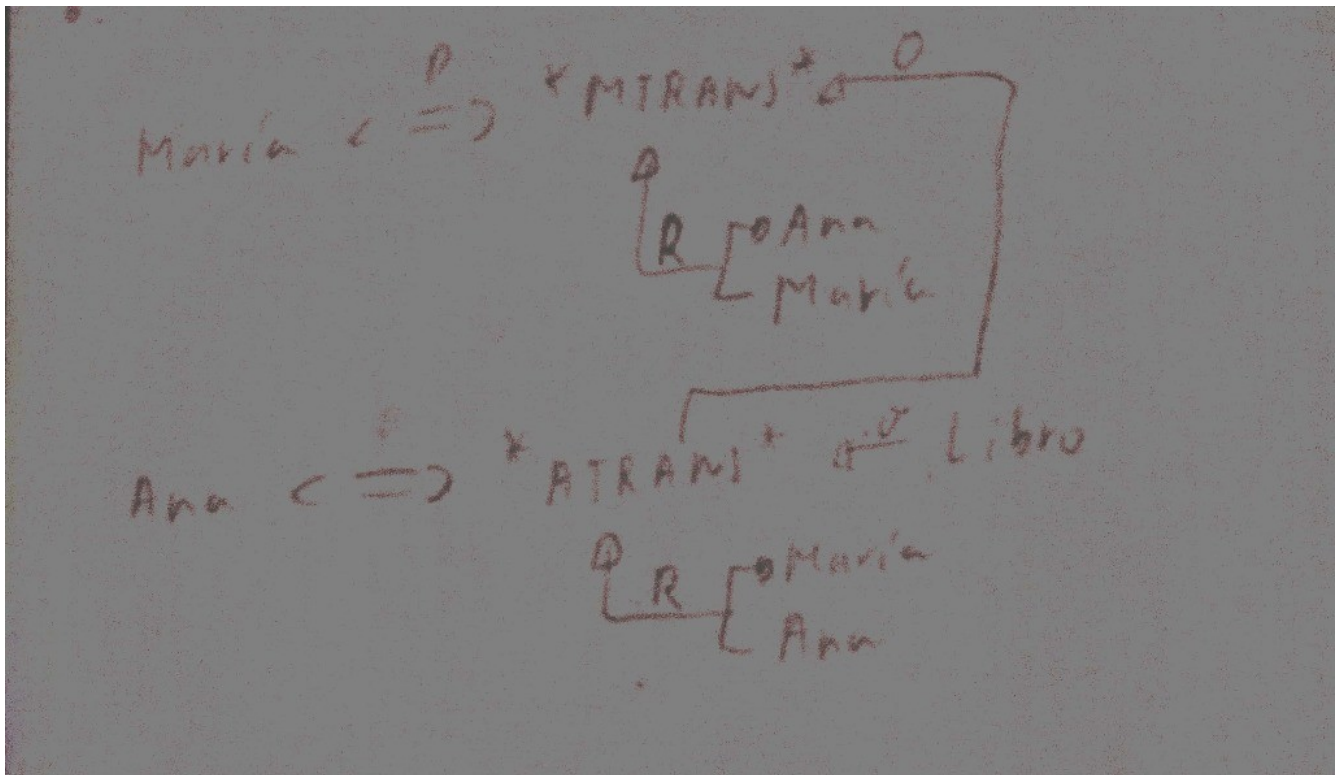 P O
María <=> *MTRANS*
R Ana
María
P
Ana <=> *ATRANS* O Libro
R María
Ana